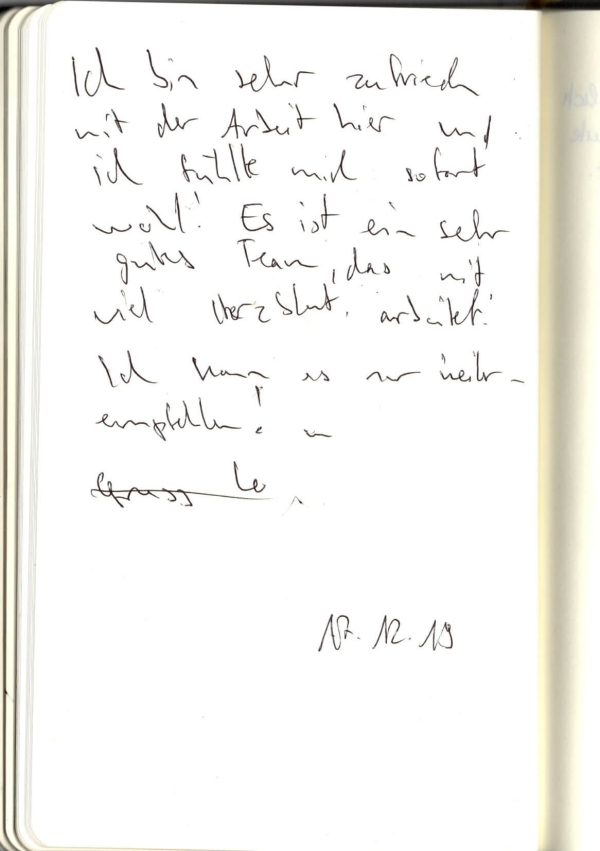 Ich bin sehr zufrieden
mit der Arbeit hier und
ich fühlte mich sofort
wohl! Es ist ein sehr
gutes Team, das mit
viel Herzblut, arbeitet!
Ich kann es nur weiter-
empfehlen!
Gruss
17.12.19